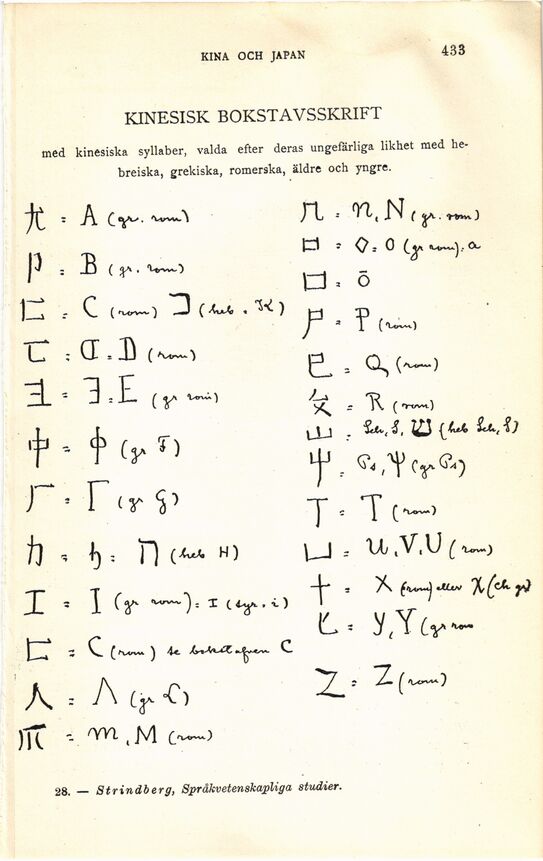 KINA OCH JAPAN 433
KINESISK BOKSTAVSSKRIFT
med kinesiska syllaber, valda efter deras ungefärliga likhet med he-
breiska, grekiska, romerska, äldre och yngre.
尤 = A (gr. rom)
卩 = B (gr. rom)
匚 = C (rom) コ (heb = K)
= D (rom)
ヨ = Ǝ. E (gr rom)
中 = ф (gr F)
厂 = Γ (gr G)
力 = ḣ = ח (heb H)
工 = I (gr rom) = I (syr. i)
匚 = C (rom) se bokstafven C
人 = Λ (gr L)
= m, M (rom)
几 = n, N (gr. rom)
口 = ◇. O (gr rom).
口 = ō
尸 = P (rom)
巴 = Q (rom)
= R (rom)
山 = Sch, S, ש (heb Sch, S)
屮 = Ps, Ψ (gr Ps)
丅 = T (rom)
凵 = U. V. U (rom)
十 = X (rom) eller χ (ch gr)
匕 = y, Y (gr rom
乙 = Z (rom)
28. — Strindberg, Språkvetenskapliga studier.